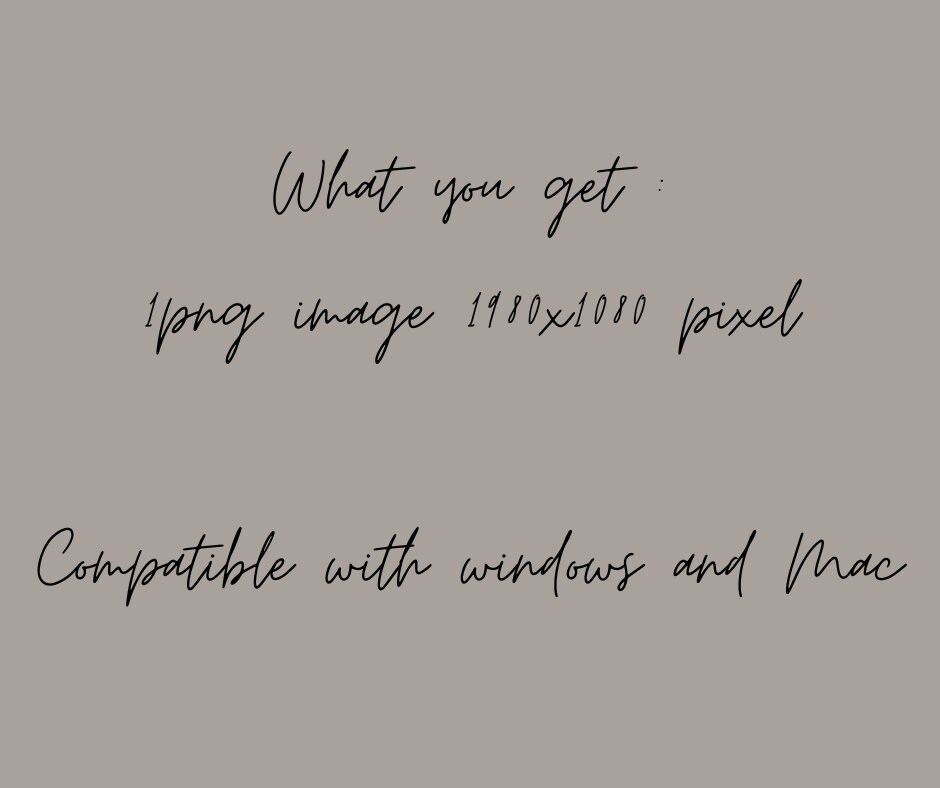 What you get :
1png image 1980x1080 pixel
Compatible with windows and Mac